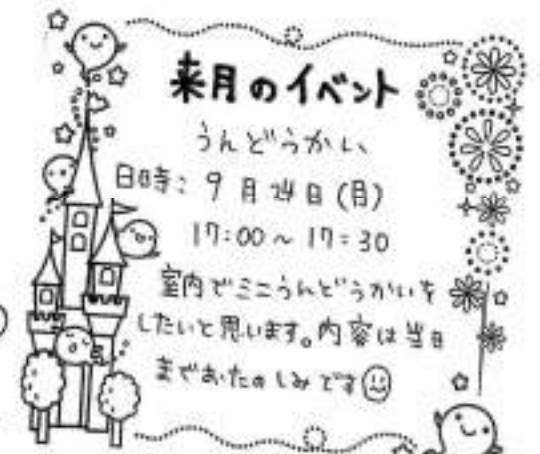 来月のイベント
うんどうかい
日時：9月24日(月)
17:00～17:30
室内でミニうんどうかいを
したいと思います。内容は当日
までおたのしみです